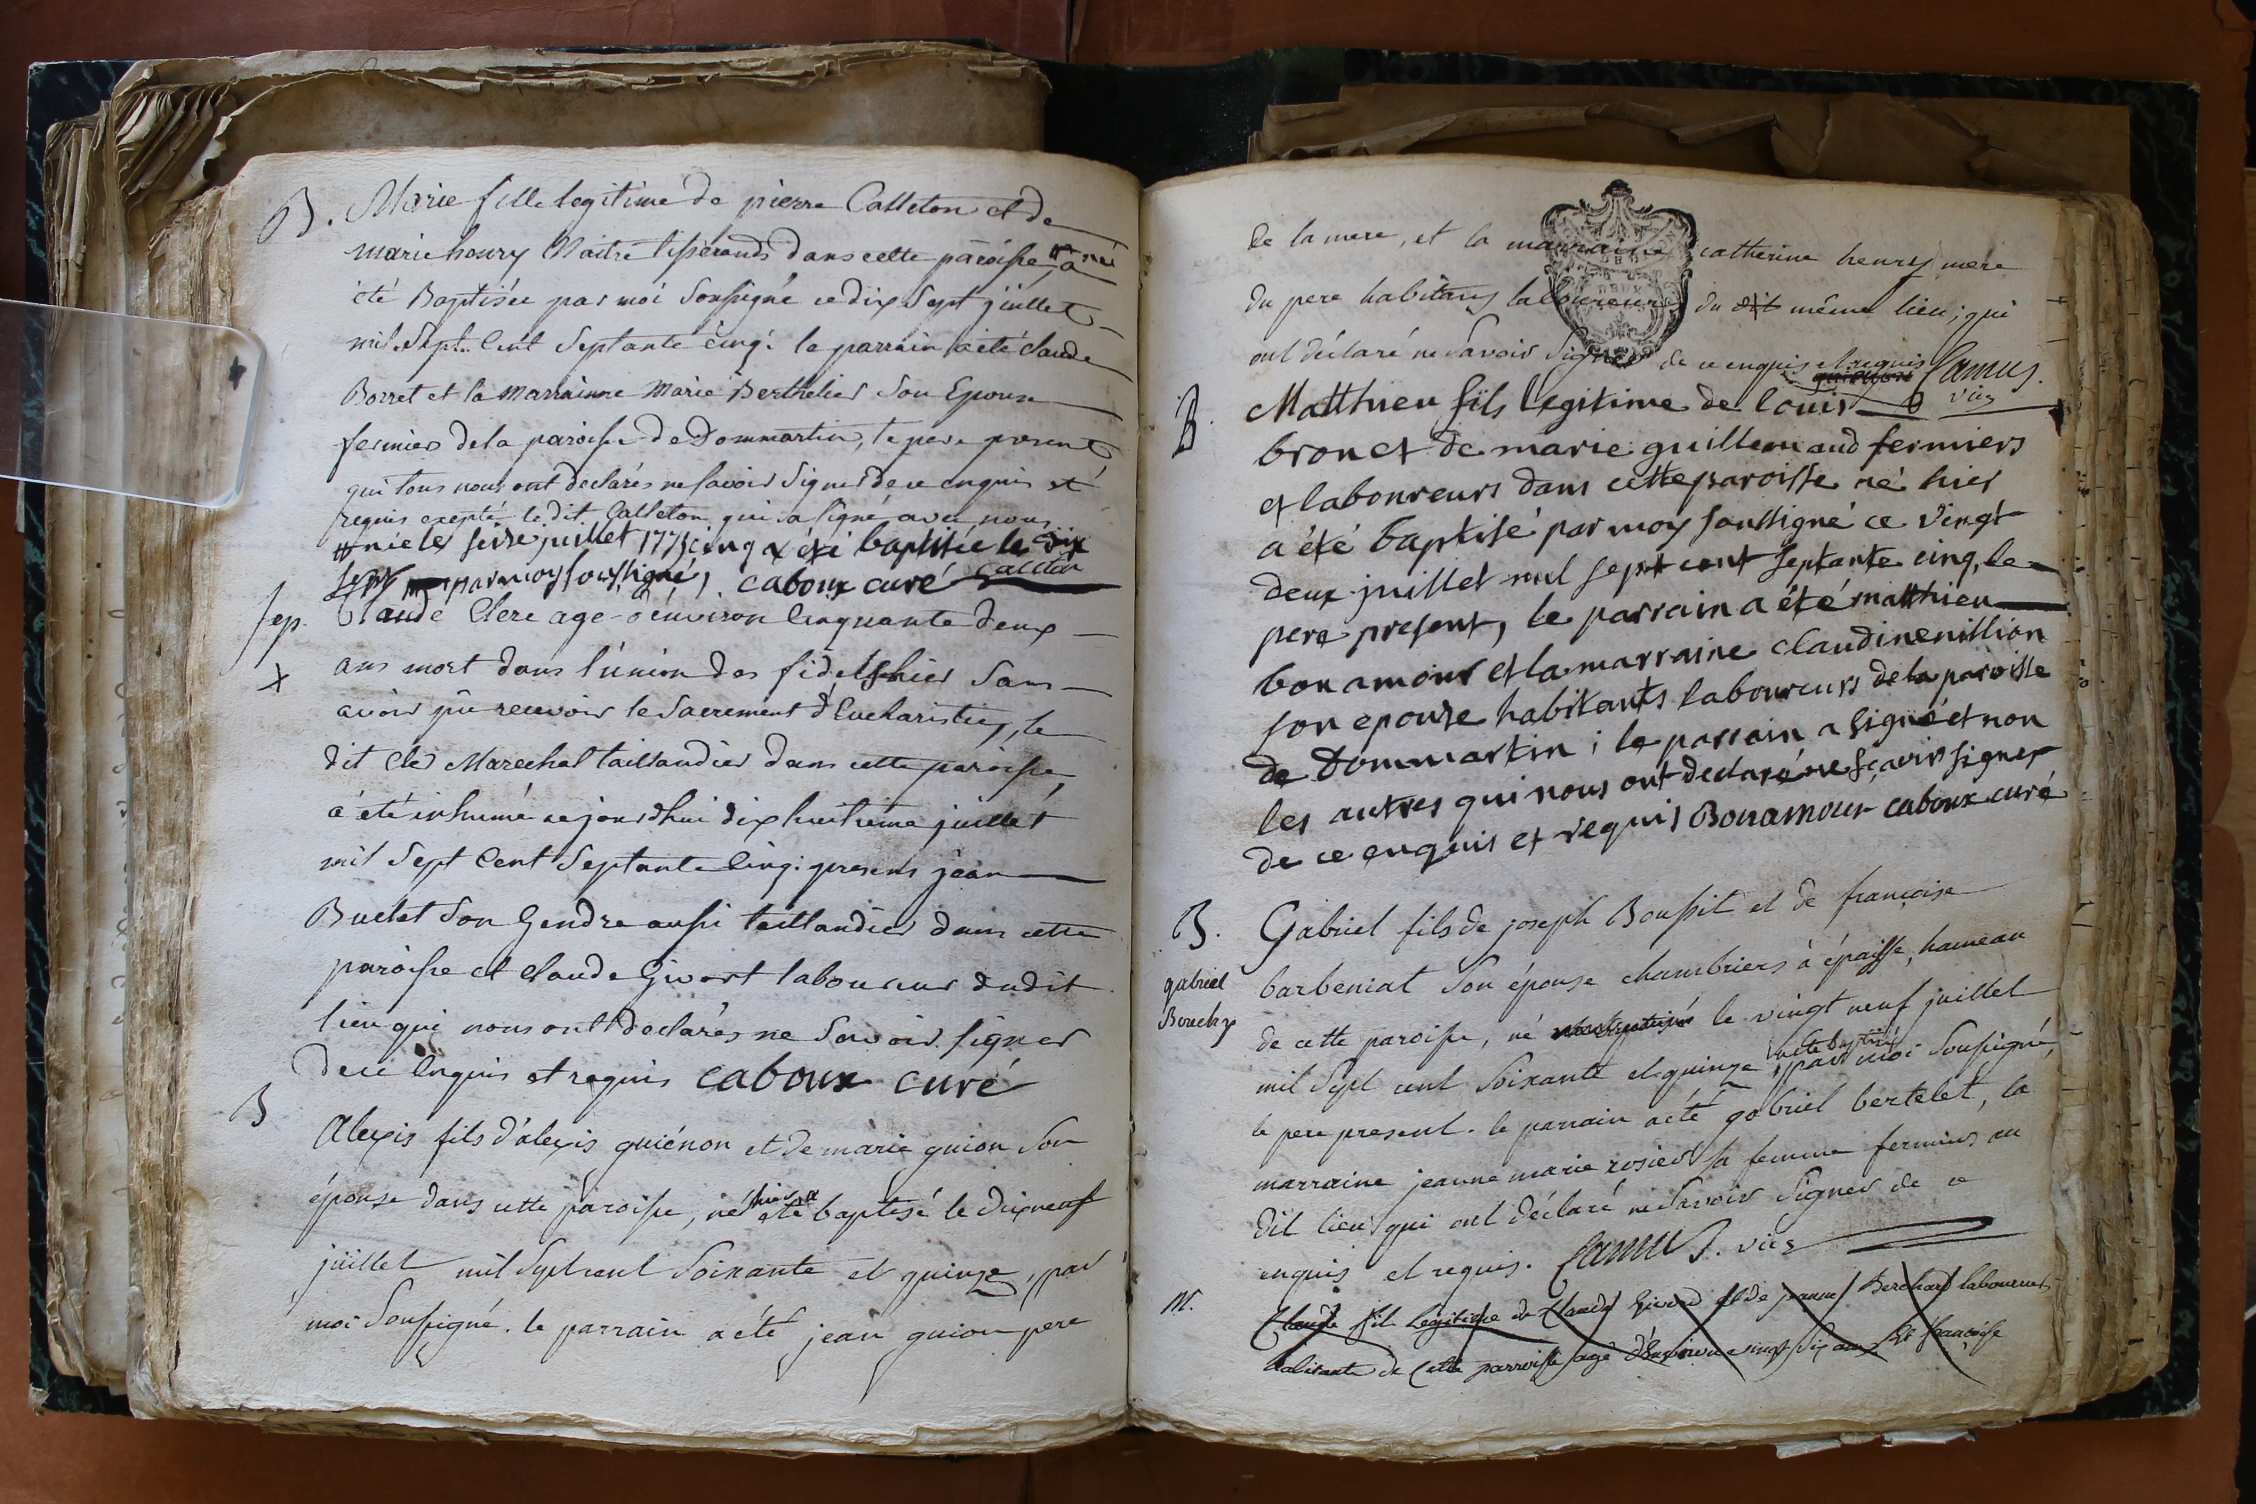 B. Marie fille legitime de pierre Calleton et de
marie henry Maitre tisserands dans cette paroisse # a
été Baptisée par moi Soussigné ce dix Sept juillet
mil Sept Cent Septante cinq. le parrain a été claude
Borret et la Marrainne Marie Berthelier Son Epouse
fermier de la paroisse de Dommartin, le pere present
qui tous nous ont declarés ne savoir Signer de ce enquis et
requis exepté le dit Calleton qui a signé avec nous
# née le seize juillet 1775 cinq a été baptisée le dix
sept par moy soussigné, caboux curé Calleton
sep. Claude Clere age d'environ Cinquante deux
x ans mort dans l'union des fidels hier Sans
avoir pû recevoir le Sacrement d'Eucharistie, le
dit Cler Marechal taillandier dans cette paroisse
a été inhumé cejourdhui dix huitieme juillet
mil Sept Cent Septante Cinq: presens jean
Buclet Son Gendre aussi taillandier dans cette
paroisse et claude Givort laboureur dudit
lieu qui nous ont declarés ne Savoir signer
de ce Enquis et requis caboux curé
B Alexis fils d'alexis guiénon et de marie guion Son
épouse dans cette paroisse, né hier a été baptisé le dixneuf
juillet mil Sept cent Soixante et quinze, par
moi Soussigné. le parrain a été jean guion pere
de la mere, et la marraine catherine henry mere
du pere habitans laboureurs du dit même lieu; qui
ont déclaré ne Savoir Signer de ce enquis et requis Camus.
vic
B. Matthieu fils legitime de louis
bron et de marie guillemaud fermiers
et laboureurs dans cette paroisse né hier
a été baptisé par moy soussigné ce vingt
deux juillet mil sept cent septante cinq, le
pere present, le parrain a été matthieu
bonamour et la marraine claudine nillion
son epouse habitants laboureurs de la paroisse
de Dommartin; le parrain a signé et non
les autres qui nous ont declaré ne sçavoir signer
de ce enquis et requis Bonamour caboux curé
B. Gabriel fils de joseph Boussit et de françoise
gabriel barbeniat Son épouse chambriers à épaisse, hameau
de cette paroisse, né le vingt neuf juillet
mil Sept cent Soixante et quinze, a été baptisé par moi Soussigné,
le pere present. le parrain a été gabriel bertelet, la
marraine jeanne marie rosier sa femme fermiers au
dit lieu qui ont déclaré ne Savoir Signer de ce
enquis et requis. Camus. vic
M. Claude fils Legitime de Claude Givord et de jeanne Berchard laboureurs
habitants de Cette parroisse agé d'Environ vingt six ans Et françoise